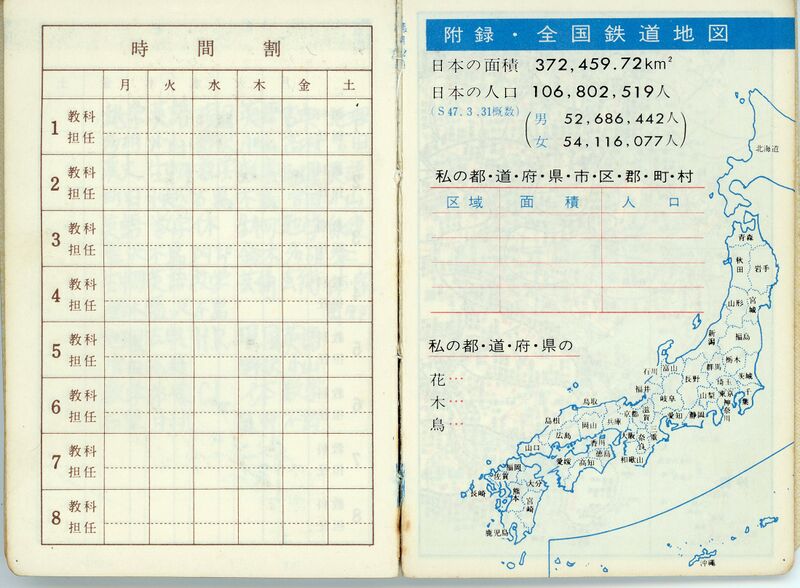 時間割
月 火 水 木 金 土
1 教科
担任
2 教科
担任
3 教科
担任
4 教科
担任
5 教科
担任
6 教科
担任
7 教科
担任
8 教科
担任
附録・全国鉄道地図
日本の面積 372,459.72km²
日本の人口 106,802,519人
(S47.3,31概数)
男 52,686,442人
女 54,116,077人
私の都・道・府・県・市・区・郡・町・村
区域 面積 人口
私の都・道・府・県の
花…
木…
鳥…
北海道
青森
秋田
岩手
山形
宮城
新潟
福島
栃木
群馬
茨城
石川
富山
長野
埼玉
千葉
福井
岐阜
山梨
東京
神奈川
鳥取
京都
滋賀
愛知
静岡
島根
岡山
兵庫
広島
大阪
奈良
三重
山口
香川
徳島
和歌山
愛媛
高知
福岡
佐賀
大分
長崎
熊本
宮崎
鹿児島
沖縄